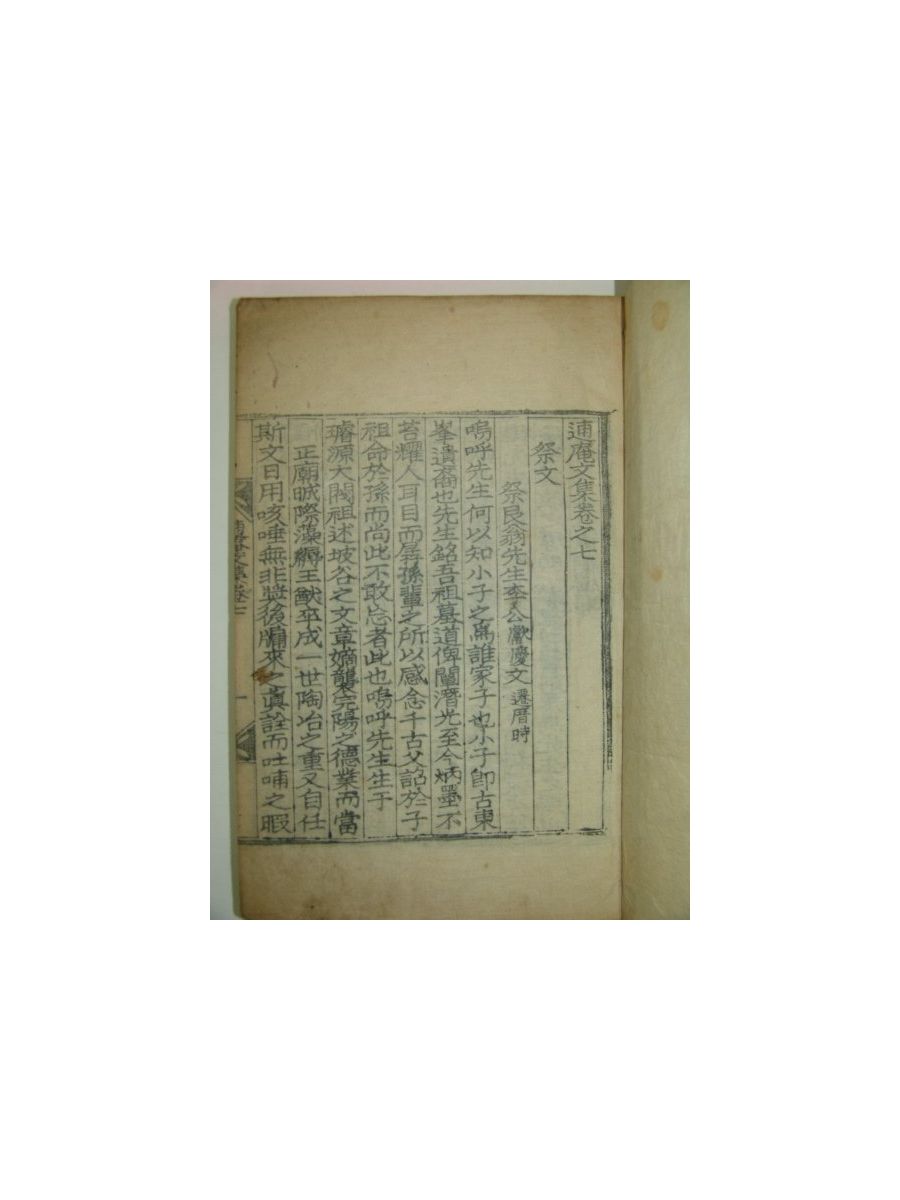 逋庵文集卷之七
祭文
祭艮翁先生李公獻慶文 遷厝時
嗚呼先生何以知小子之爲誰家子也小子卽古東
峯遺裔也先生銘吾祖墓道俾闡潛光至今炳墨不
苔耀人耳目而孱孫輩之所以感念千古父詔於子
祖命於孫而尚此不敢忘者此也嗚呼先生生于
璿源大閥祖述坡谷之文章嫡襲完陽之德業而當
正廟晠際藻縟王猷平成一世陶冶之重又自任
斯文日用咳唾無非獎後牖來之眞詮而吐哺之暇
文集卷七 一